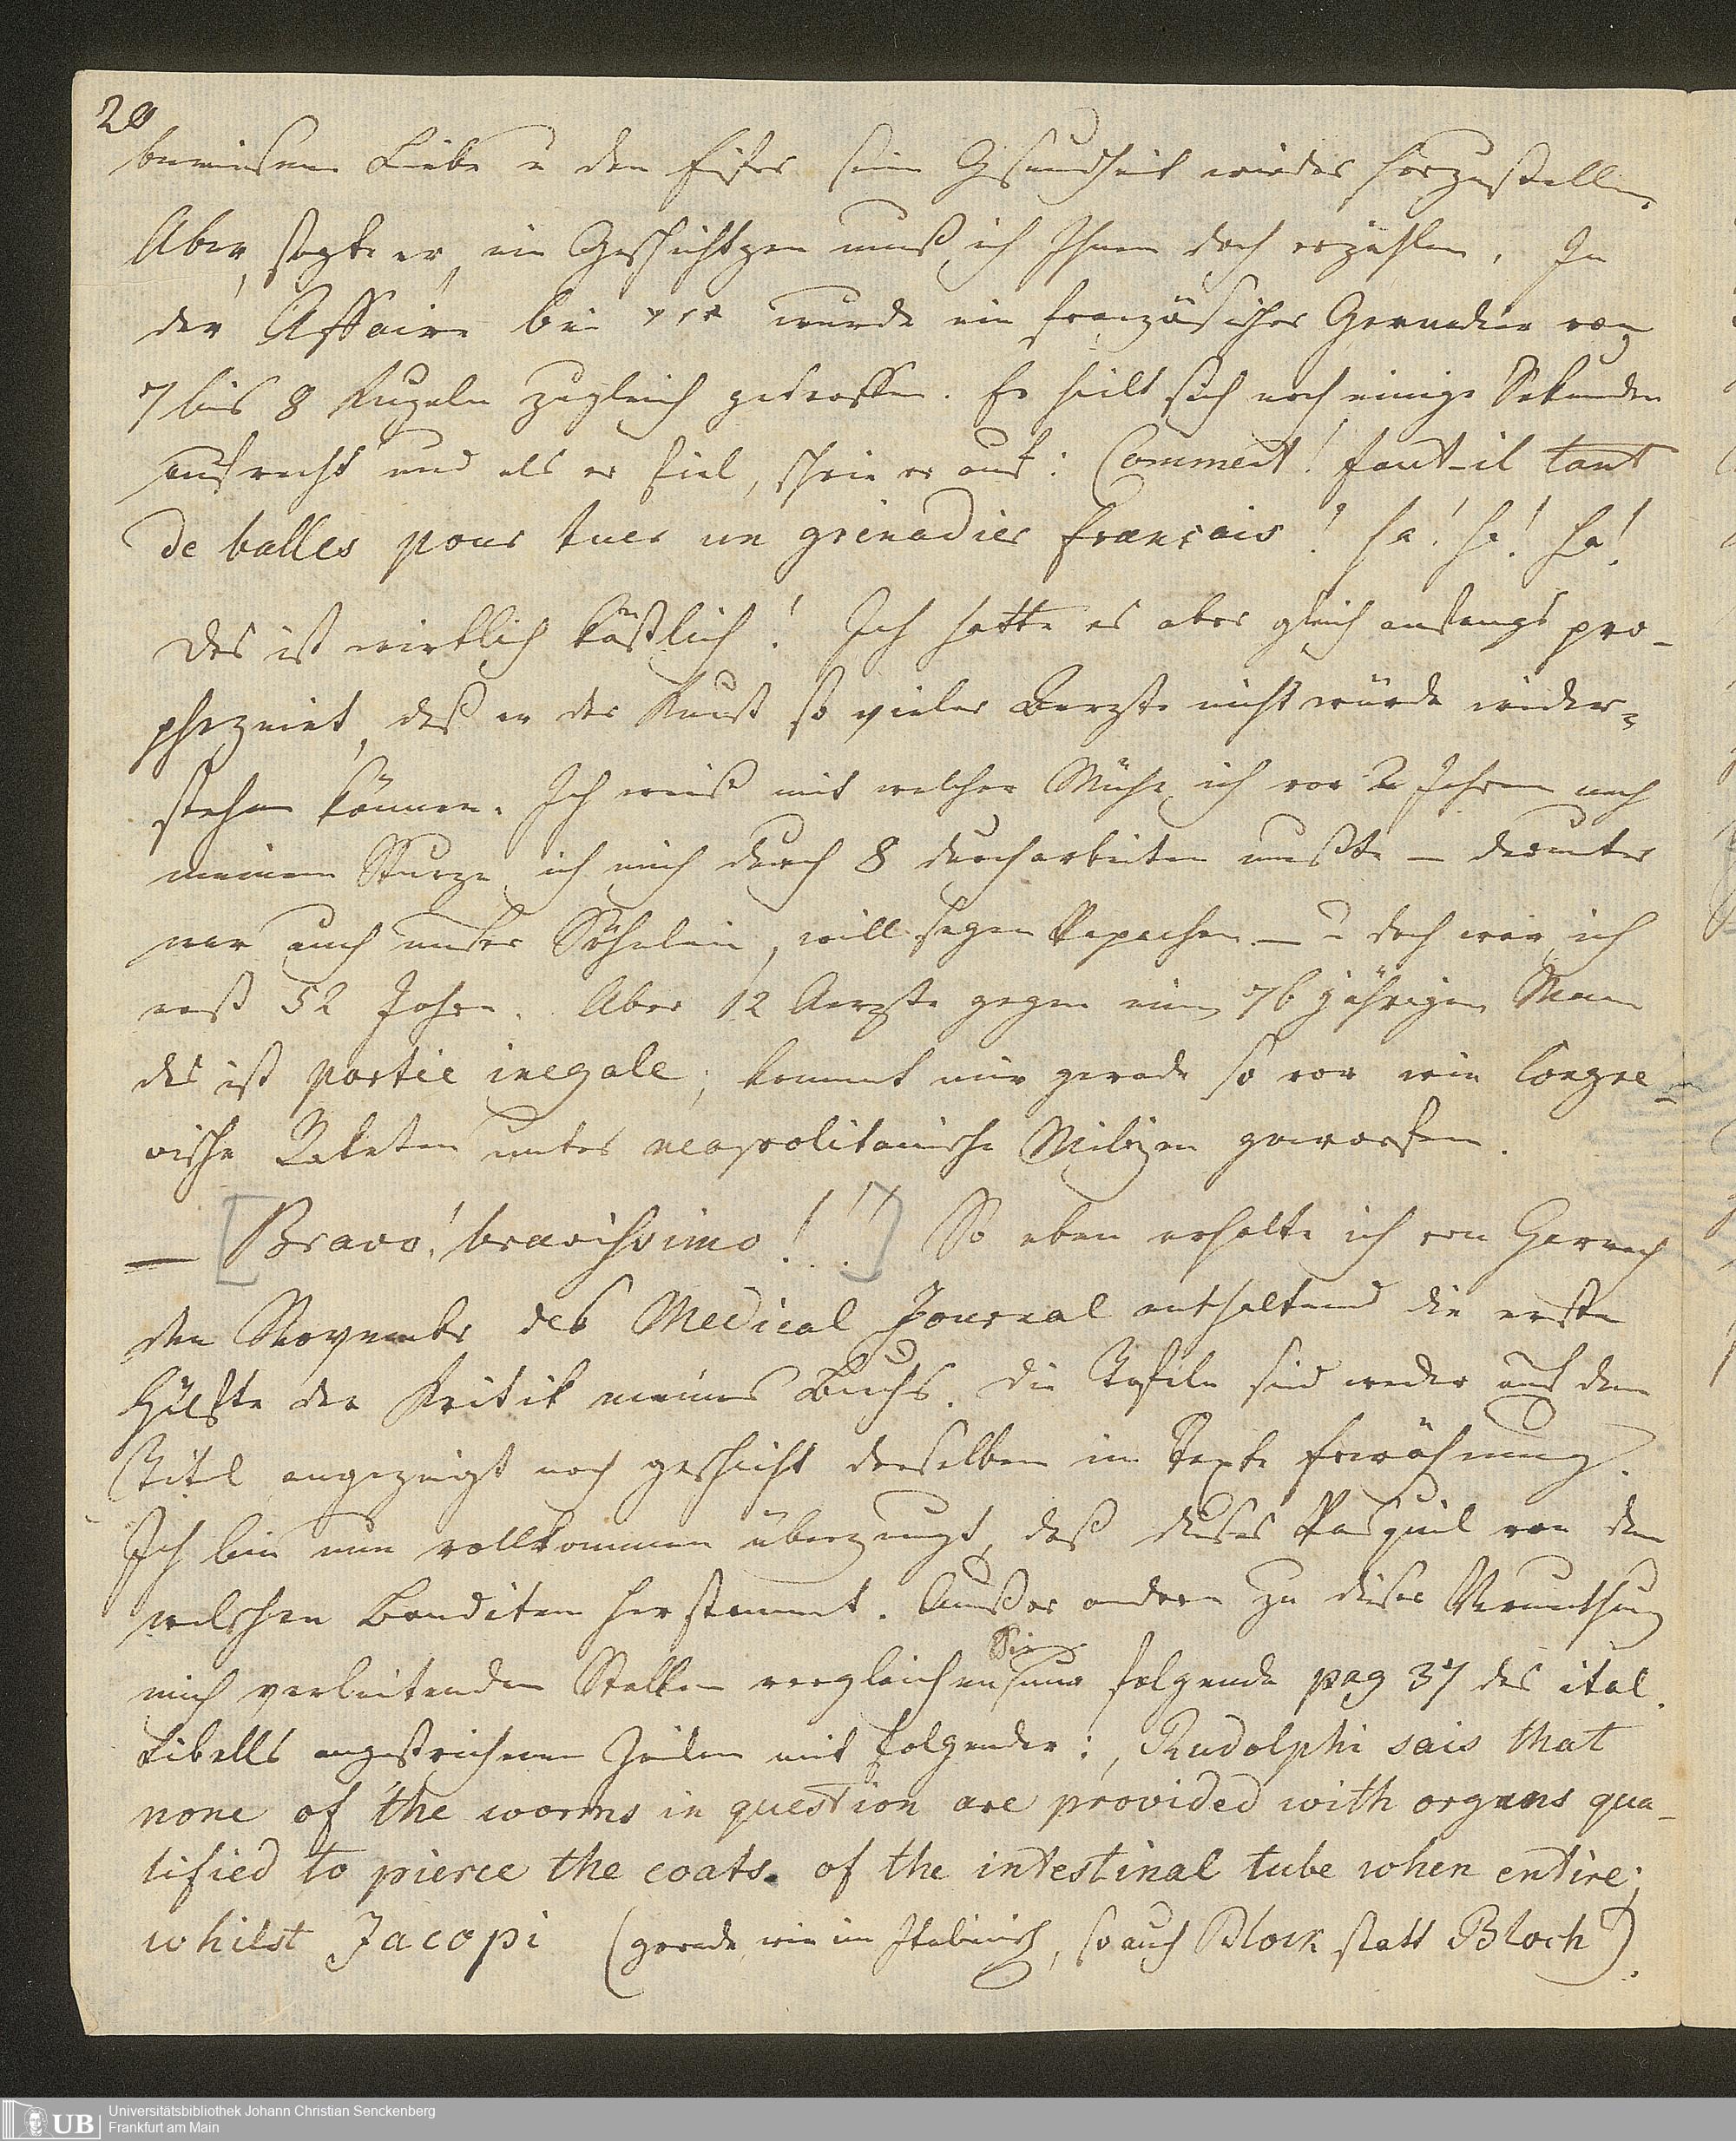 20
bewiesene Liebe u den Eifer seine Gesundheit wieder herzustellen.
Aber, sagte er, ein Geschichtgen muß ich Ihnen doch erzählen. In
der Affaire bei *** wurde ein französischer Grenadier von
7 bis 8 Kugeln zugleich getroffen. Er hielt sich noch einige Sekunden
aufrecht und als er fiel, schrie er aus: Comment! faut-il tant
de balles pour tuer un grenadier français! ha! ha! ha!
Das ist wirklich köstlich! Ich hatte es aber gleich anfangs pro-
phezeiet, daß er der Kunst so vieler Aerzte nicht würde wider-
stehen können. Ich weiß mit welcher Mühe ich vor 2 Jahren nach
meinem Sturze ich mich durch 8 durcharbeiten mußte – darunter
war auch unser Söhnlein, will sagen Papachen – u doch war ich
erst 52 Jahre. Aber 12 Aerzte gegen einen 76 jährigen Mann
das ist partie inegale; kommt mir gerade so vor wie Congre-
vische Raketen unter neapolitanische Milizen geworfen.
– [Bravo! bravissimo!!!] So eben erhalte ich von Gerrach
den November des Medical Journal enthaltend die erste
Hälfte der Kritik meines Buchs. Die Tafeln sind weder auf dem
Titel angezeigt noch geschieht derselben im Texte Erwähnung.
Ich bin nun vollkommen überzeugt, daß dieses Pasquil von dem
welschen Banditen herstammt. Außer andern zu dieser Vermuthung
mich verleitenden Stellen vergleichen Sie nur folgende pag 37 des ital.
Libells angestrichenen Zeilen mit folgender: Rudolphi sais that
none of the worms in question are provided with organs qua-
lified to pierce the coats. of the intestinal tube when entire;
whilst Jacopi (gerade wie im Italienisch, so auch Block statt Bloch).
UB Universitätsbibliothek Johann Christian Senckenberg
Frankfurt am Main